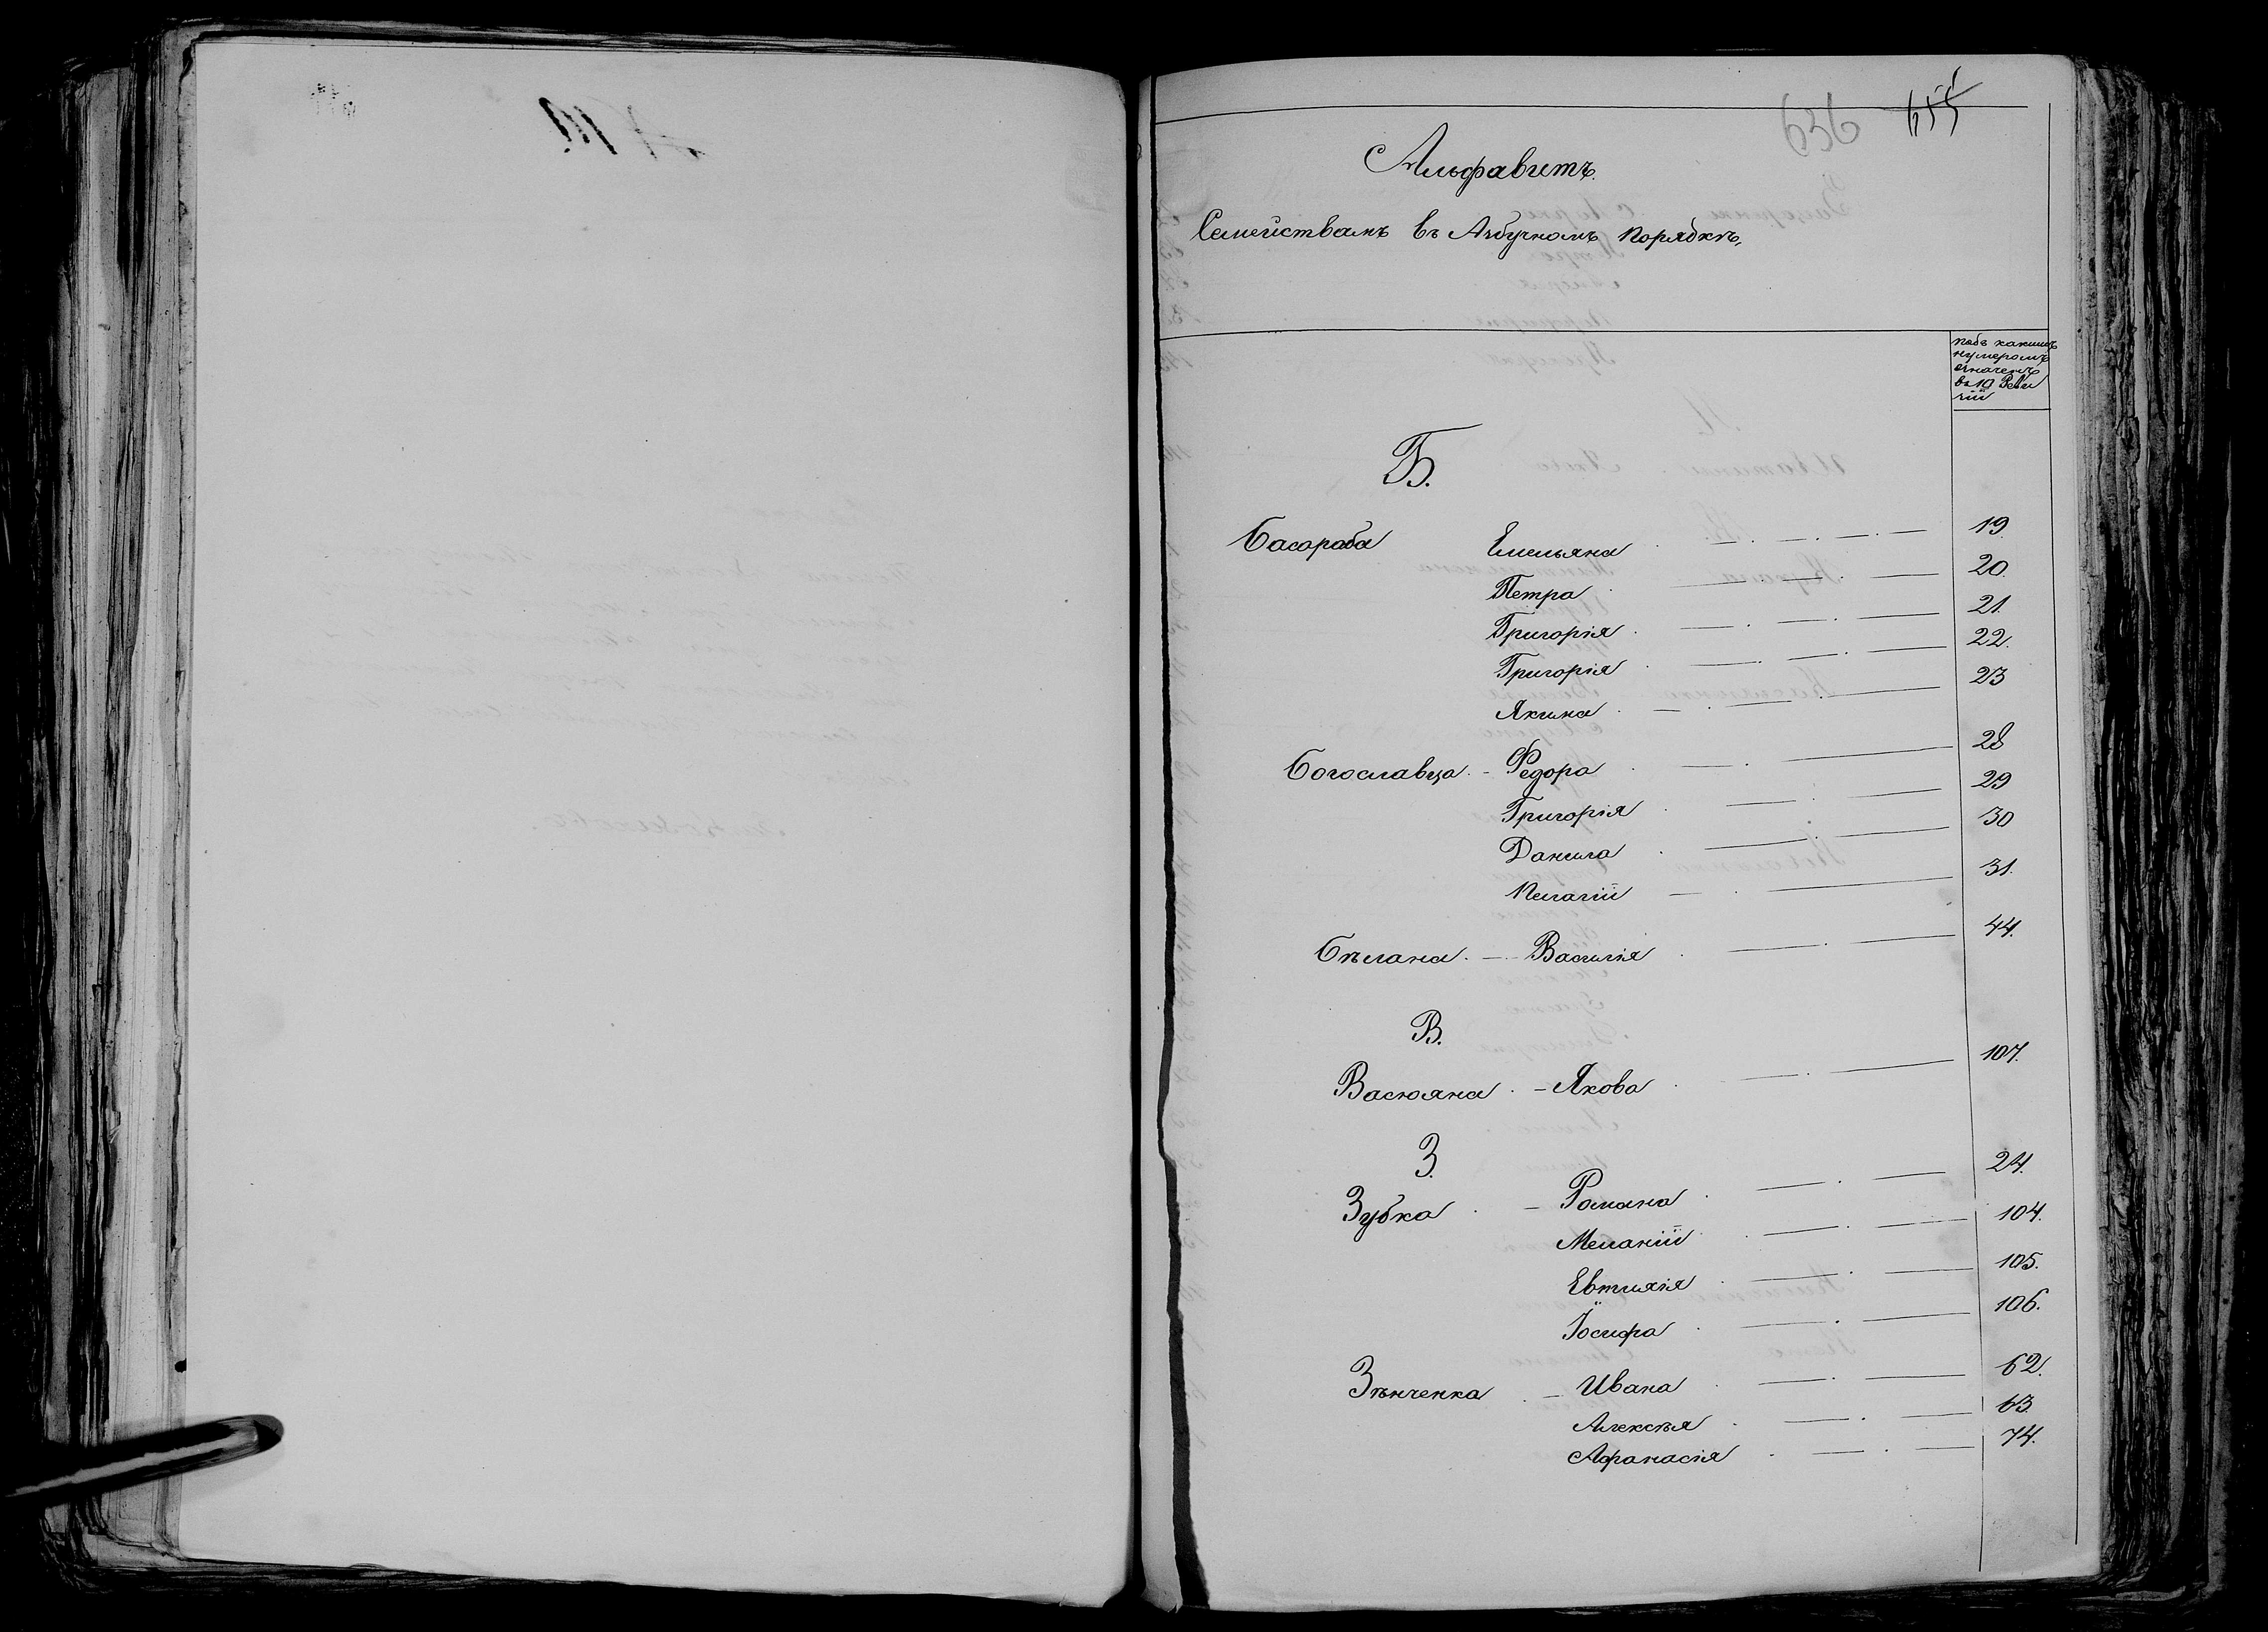 636 655
Альфавитъ.
Семействамъ въ Азбучномъ Порядкѣ,
Подъ какимъ
нумеромъ
значатъ
въ 10 Реви
зіи
Б.
Басараба Емельяна 19
Петра 20.
Григорія 21.
Григорія 22.
Якима 23
Богославца - Федора 28
Григорія 29
Данила 30
Пелагіи 31.
Бѣлана - Василія 44.
В.
Васюяна - Якова 107.
З.
Зубка - Романа 24.
Меланіи 104.
Евтихія 105.
Іосифа 106.
Зѣнченка - Ивана 62.
Алексѣя 63.
Афанасія 74.